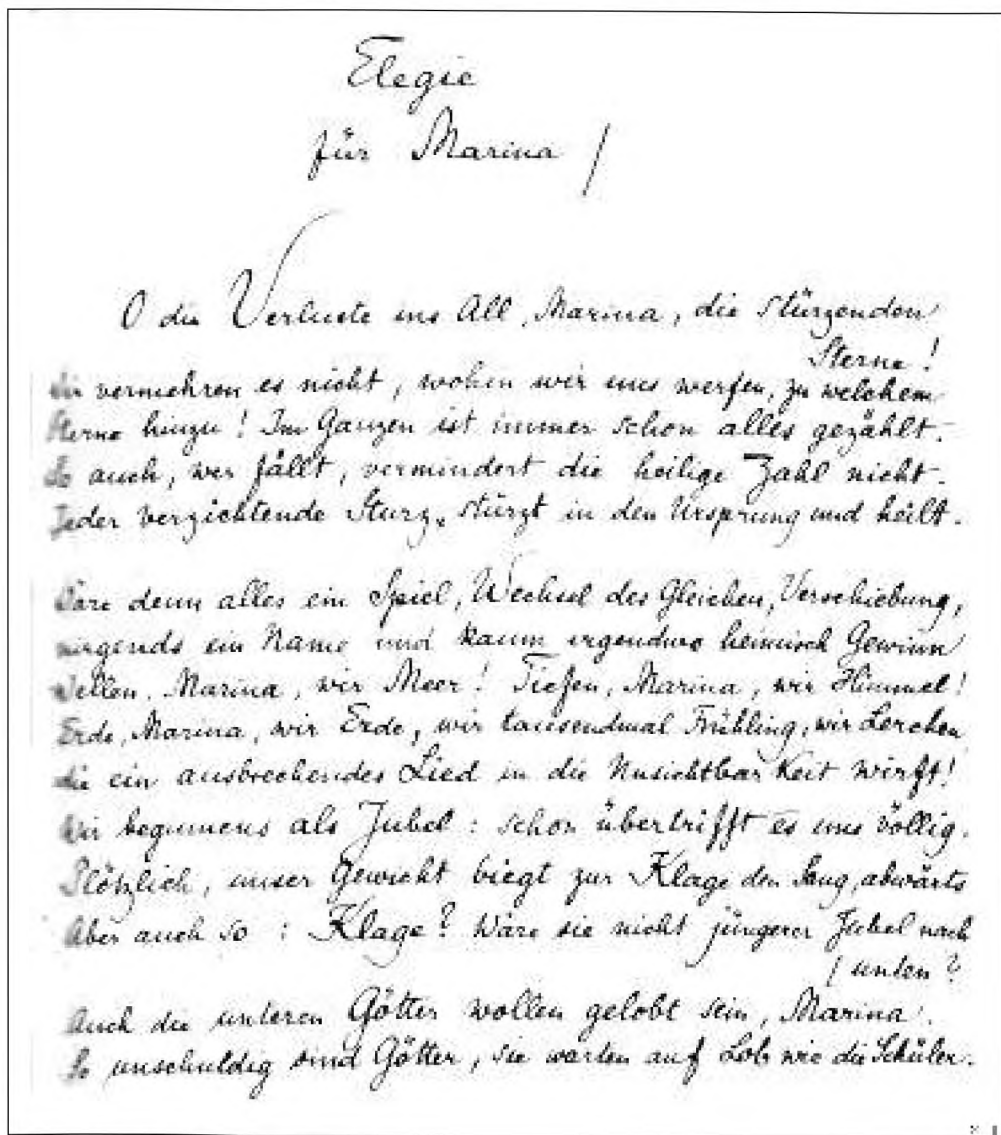 Elegie
für Marina
O die Verluste ins All, Marina, die stürzenden
Sterne!
Wir vermehren es nicht, wohin wir uns werfen, zu welchem
Sterne hinzu! Im Ganzen ist immer schon alles gezählt.
So auch, wer fällt, vermindert die heilige Zahl nicht.
Jeder verzichtende Sturz, stürzt in den Ursprung und heilt.
Wäre denn alles ein Spiel, Wechsel des Gleichen, Verschiebung,
nirgends ein Name und kaum irgendwo heimisch Gewinn
Wellen, Marina, wir Meer! Tiefen, Marina, wir Himmel!
Erde, Marina, wir Erde, wir tausendmal Frühling, wir Lerchen
die ein ausbrechendes Lied in die Unsichtbarkeit wirft!
Wir beginnens als Jubel: schon übertrifft es uns völlig.
Plötzlich, unser Gewicht biegt zur Klage den Sang, abwärts
Aber auch so: Klage? Wäre sie nicht jüngerer Jubel nach
unten?
Auch die unteren Götter wollen gelobt sein, Marina.
So unschuldig sind Götter, sie warten auf Lob wie die Schüler.